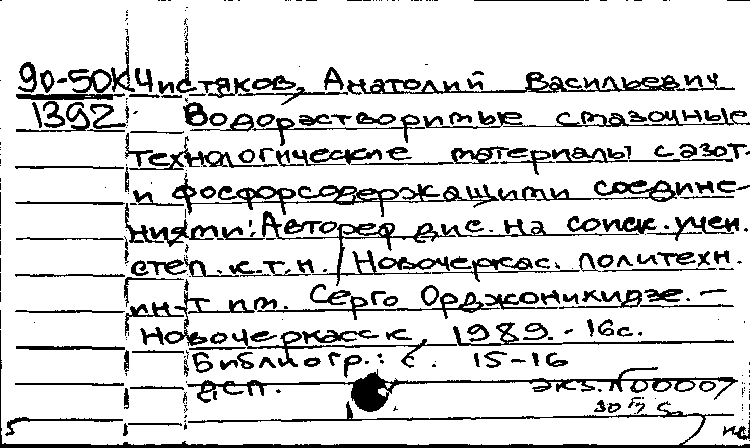 90-50К Чистяков, Анатолий Васильевич
1392 Водорастворимые смазочные
технологические материалы с азот-
и фосфорсодержащими соедине-
ниями: Автореф дис. на соиск. учен.
степ. к.т.н. / Новочеркас. политехн.
ин-т им. Серго Орджоникидзе. —
Новочеркасск, 1989. - 16с.
Библиогр.: с. 15-16
ДСП. экз. №00007
5